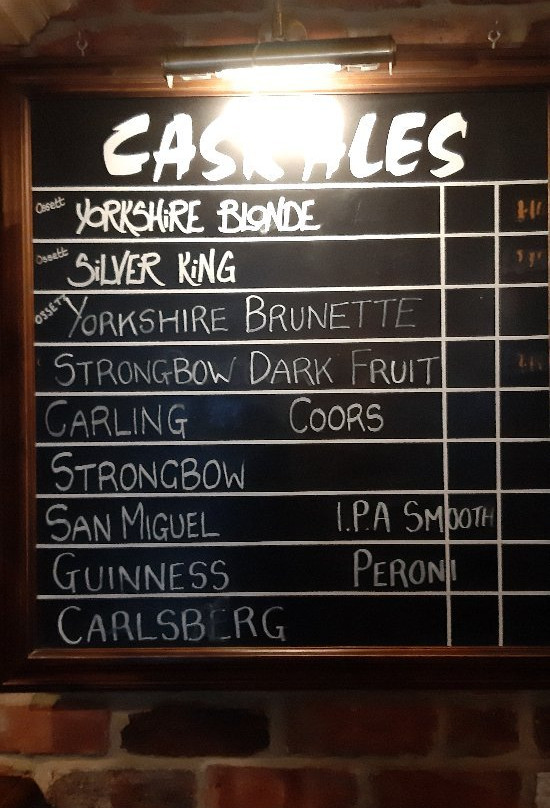 CASK ALES
Ossett YORKSHIRE BLONDE
Ossett SILVER KING
OSSETT YORKSHIRE BRUNETTE
STRONGBOW DARK FRUIT
CARLING COORS
STRONGBOW
SAN MIGUEL I.P.A SMOOTH
GUINNESS PERONI
CARLSBERG